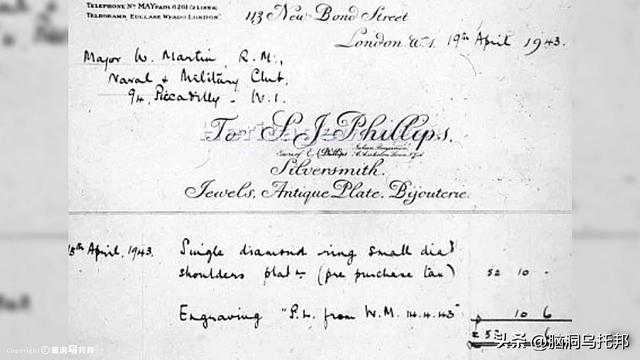 TELEPHONE No MAYFAIR 6261 (2 LINES)
TELEGRAMS, EUCLASE WESDO LONDON
113 New Bond Street
London W.1. 19th April 1943.
Major W. Martin, R.M.,
Naval & Military Club,
94, Piccadilly - W.1.
To S. J. Phillips,
Silversmith.
Jewels, Antique Plate, Bijouterie.
15th April, 1943. Single diamond ring small diad
shoulders plat. (pre purchase tax) 52 10 -
Engraving "P.L. from W.M. 14.4.43" 10 6
£ 53 - 6
Copyright © 脑洞乌托邦
头条 @脑洞乌托邦